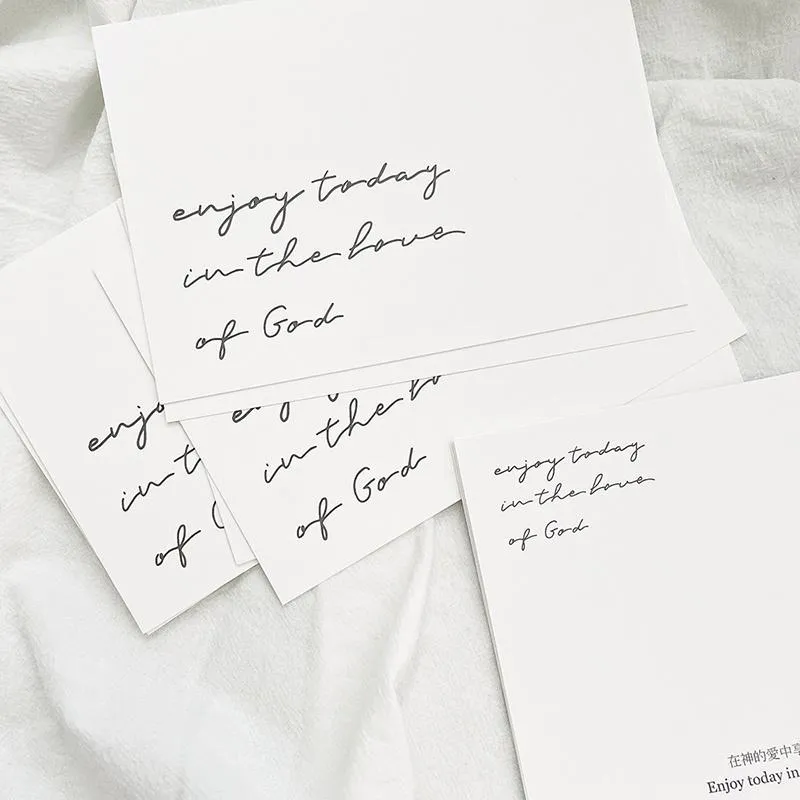 enjoy today
in the love
of God
enjo
in the lo
of God
enjo
in t
of G
enjoy today
in the love
of God
在神的愛中享
Enjoy today in